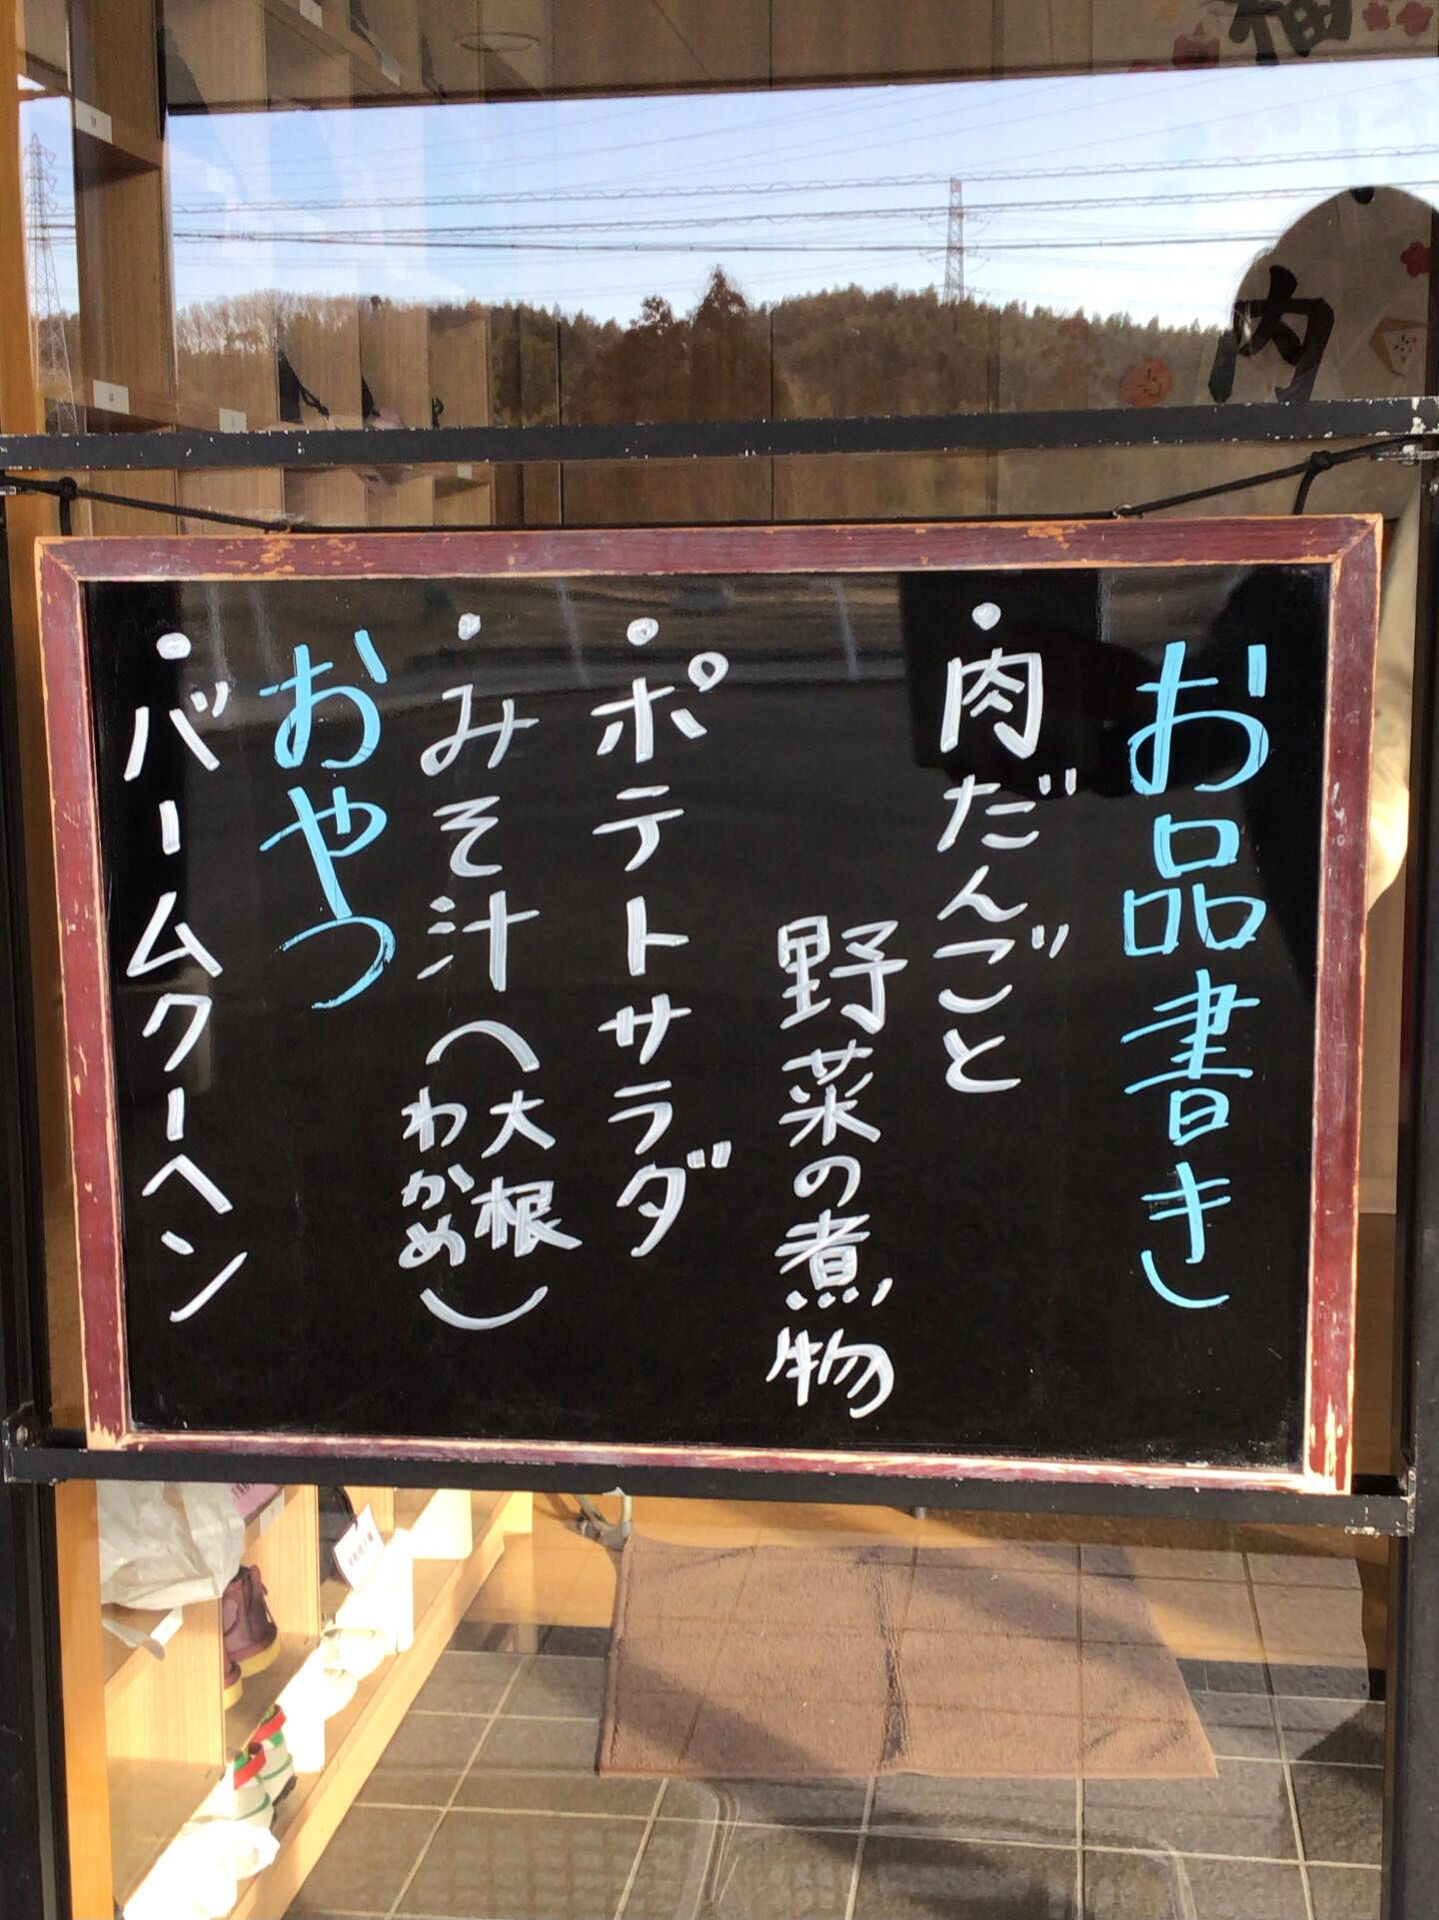 お品書き
・肉だんごと
野菜の煮物
・ポテトサラダ
・みそ汁(大根
わかめ)
おやつ
・バームクーヘン
福
内